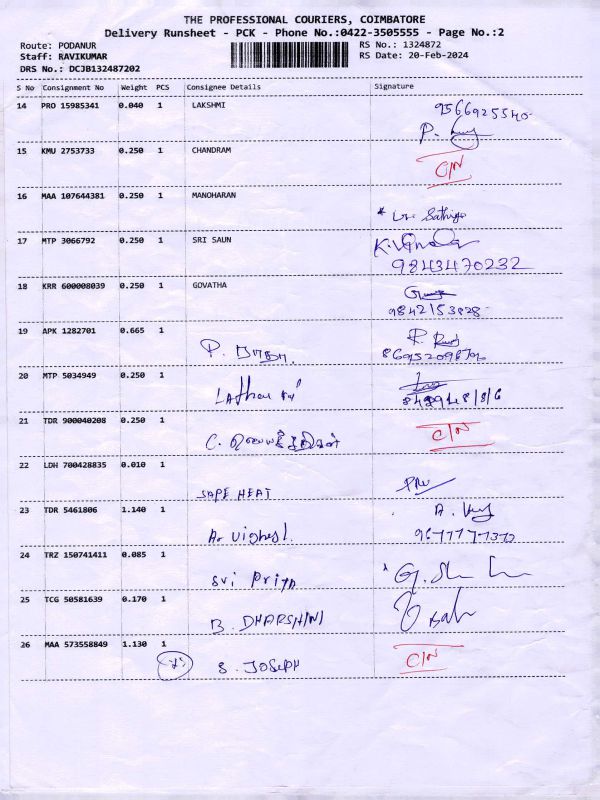 THE PROFESSIONAL COURIERS, COIMBATORE
Delivery Runsheet - PCK - Phone No.:0422-3505555 - Page No.:2
Route: PODANUR RS No.: 1324872
Staff: RAVIKUMAR RS Date: 20-Feb-2024
DRS No.: DCJB132487202
S No Consignment No Weight PCS Consignee Details Signature
14 PRO 15985341 0.040 1 LAKSHMI
15 KMU 2753733 0.250 1 CHANDRAM C/N
16 MAA 107644381 0.250 1 MANOHARAN
17 MTP 3066792 0.250 1 SRI SAUN
9843470232
18 KRR 600008039 0.250 1 GOVATHA
19 APK 1282701 0.665 1
20 MTP 5034949 0.250 1
21 TDR 900040208 0.250 1 C/N
22 LDH 700428835 0.010 1
SAPE HEAT
23 TDR 5461806 1.140 1
24 TRZ 150741411 0.085 1
Sri Priya
25 TCG 50581639 0.170 1
B. DHARSHINI
26 MAA 573558849 1.130 1 C/N
S. JOSEPH